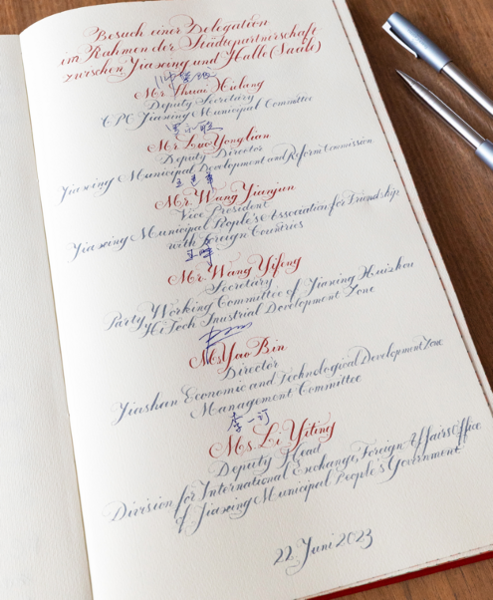 Besuch einer Delegation
im Rahmen der Städtepartnerschaft
zwischen Jiaxing und Halle (Saale)
Mr. Shuai
Deputy Secretary
CPC Jiaxing Municipal Committee
Mr. Luo Yonglian
Deputy Director
Jiaxing Municipal Development and Reform Commission
Mr. Wang Jianjun
Vice President
Jiaxing Municipal People's Association for Friendship
with Foreign Countries
王峰
Mr. Wang Yifeng
Secretary
Party Working Committee of Jiaxing Xiuzhou
HiTech Inustrial Development Zone
Ms Yao Bin
Director
Jiashan Economic and Technological Development Zone
Management Committee
李一汀
Ms. Li Yiting
Deputy Head
Division for International Exchange, Foreign Affairs Office
of Jiaxing Municipal People's Government
22. Juni 2023